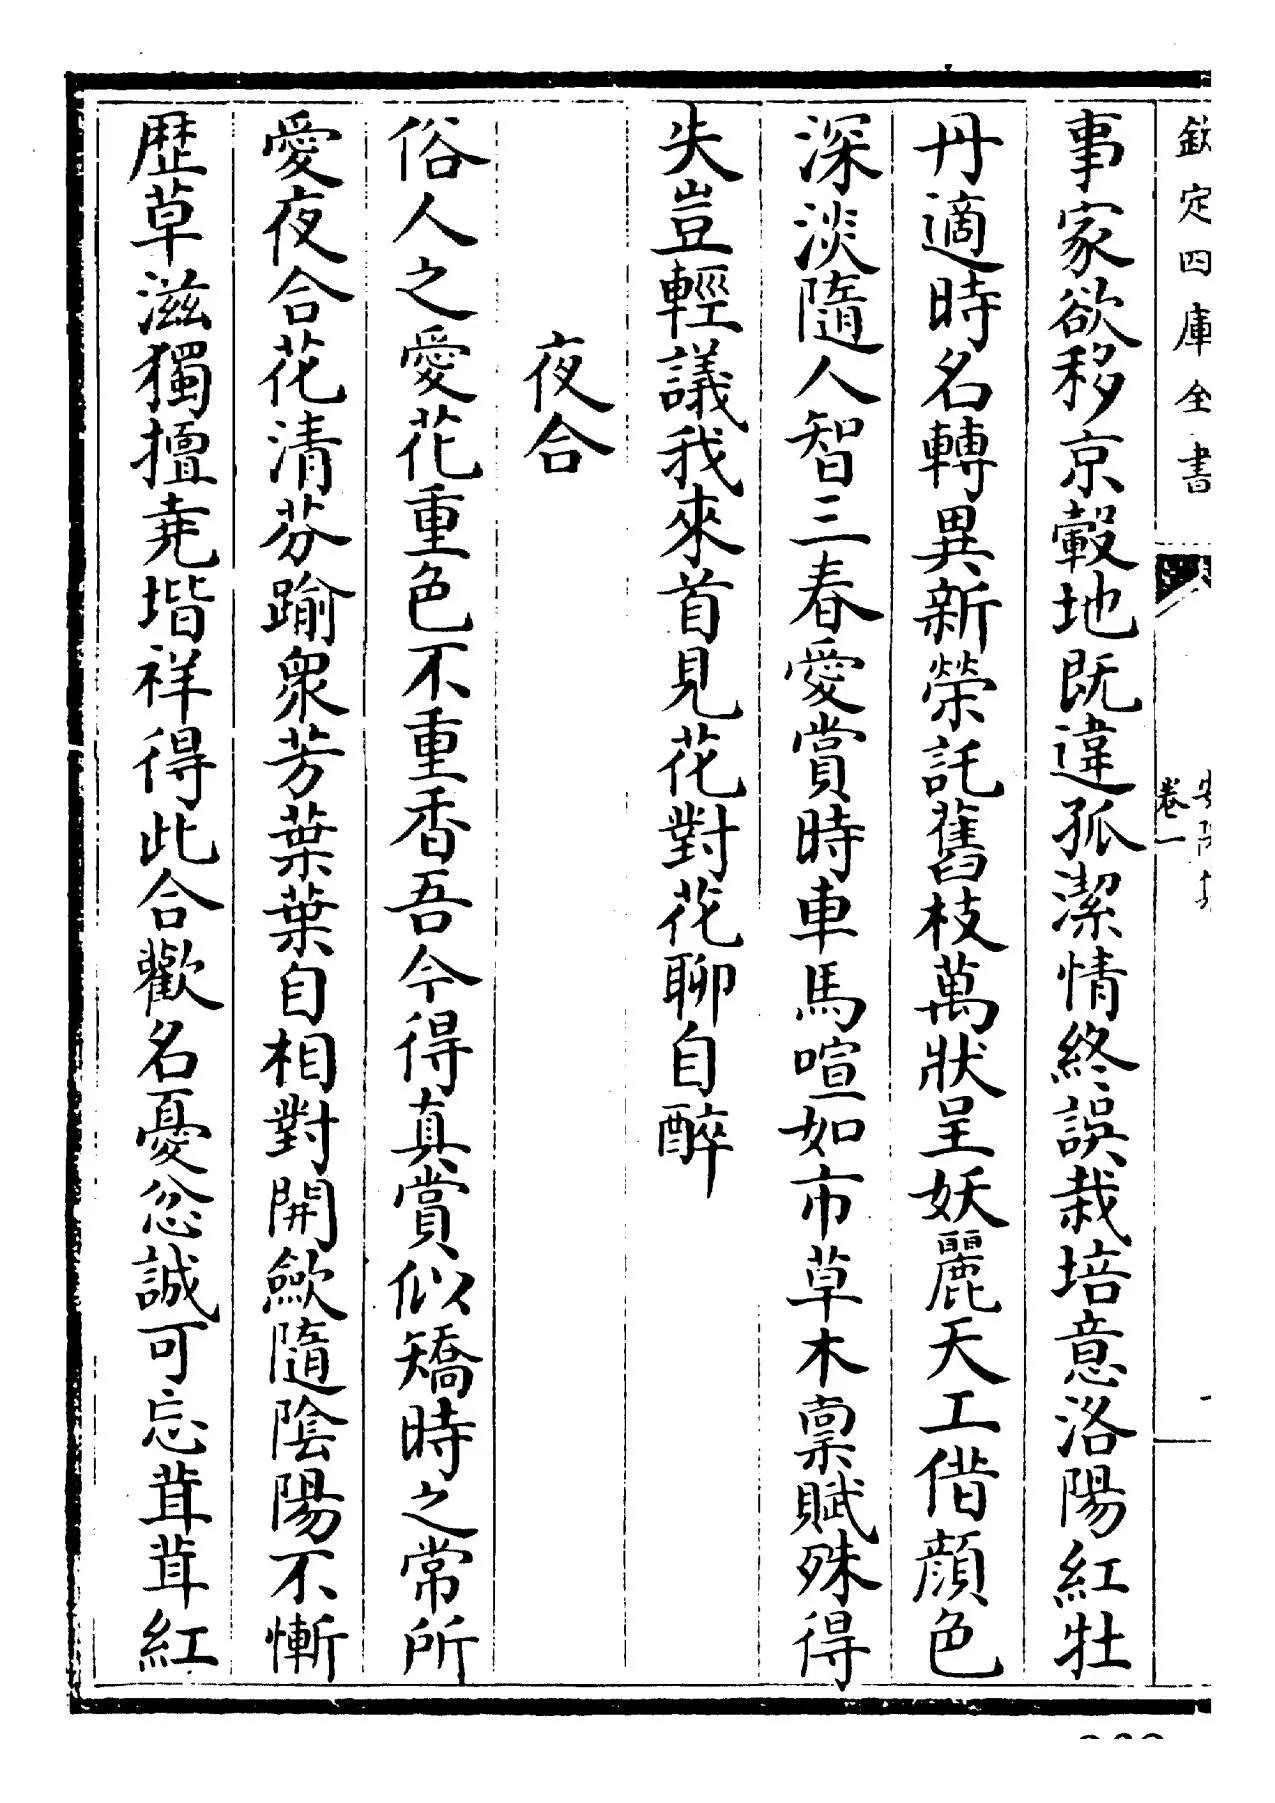 欽定四庫全書
卷一
事家欲移京轂地既違孤潔情終誤栽培意洛陽紅牡
丹適時名轉異新榮託舊枝萬狀呈妖麗天工借顔色
深淡隨人智三春愛賞時車馬喧如市草木禀賦殊得
失豈輕議我來首見花對花聊自醉
夜合
俗人之愛花重色不重香吾今得真賞似矯時之常所
愛夜合花清芬踰衆芳葉葉自相對開歛隨陰陽不慚
歴草滋獨擅尭堦祥得此合歡名憂忿誠可忘茸茸紅